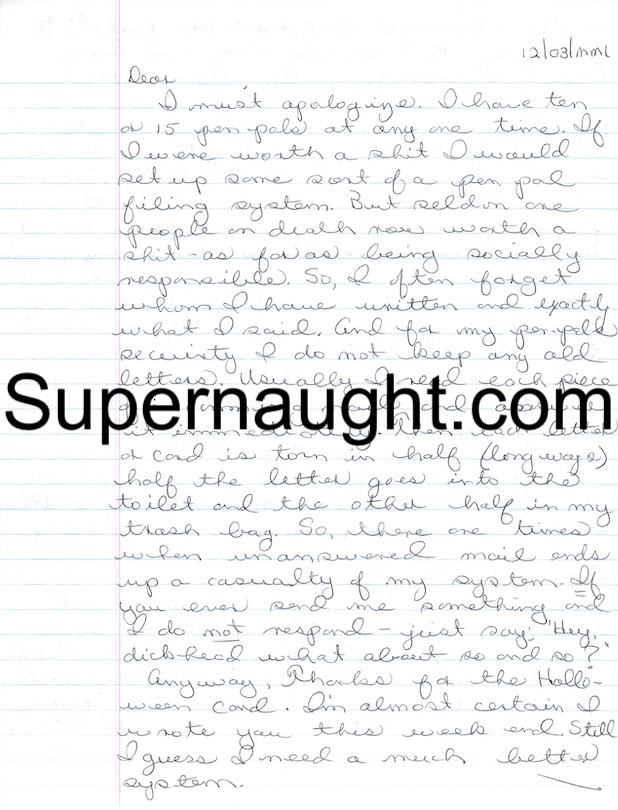 12/03/MML
Dear
I must apologize. I have ten
or 15 pen pals at any one time. If
I were worth a shit I would
set up some sort of a pen pal
filing system. But seldom are
people on death row worth a
shit - as far as being socially
responsible. So, I often forget
whom I have written and exactly
what I said. And for my pen-pals
security I do not keep any old
letters. Usually I read each piece
Supernaught.com
it immediately. Then each letter
or card is torn in half (longways)
half the letter goes into the
toilet and the other half in my
trash bag. So, there are times
when unanswered mail ends
up a casualty of my system. If
you ever send me something and
I do not respond - just say; "Hey,
dickhead what about so and so?"
Anyway, Thanks for the Hallo-
ween card. I'm almost certain I
wrote you this week end. Still
I guess I need a much better
system.